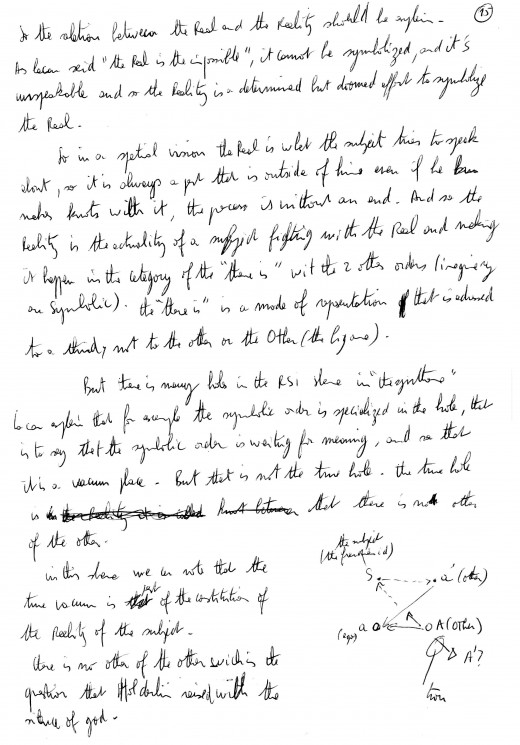 15
So the relation between the Real and the Reality should be explain.
As Lacan said "the Real is the impossible", it cannot be symbolized, and it's
unspeakable and so the Reality is a determined but doomed effort to symbolize
the Real.
So in a spatial vision the Real is what the subject tries to speak
about, so it is always a part that is outside of him even if he
makes knots with it, the process is without an end. And so the
Reality is the actuality of a subject fighting with the Real and making
it happen in the category of the "there is" with the 2 other orders (imaginary
and Symbolic). the "there is" is a mode of representation that is adressed
to a third, not to the other or the Other (the bigone).
But there is many hole in the RSI
Lacan explain that for example the symbolic order is specialized in the hole, that
is to say that the symbolic order is waiting for meaning, and so that
it is a vacuum place. But that is not the true hole. the true hole
is that there is not other
of the other.
in this we can note that the
true vacuum is part of the constitution of
the Reality of the subject.
there is no other of the other which is the
question that Holderlin raised with the
silence of god.
the subject
S
a' (other)
(ego) a
A (Other)
A'?